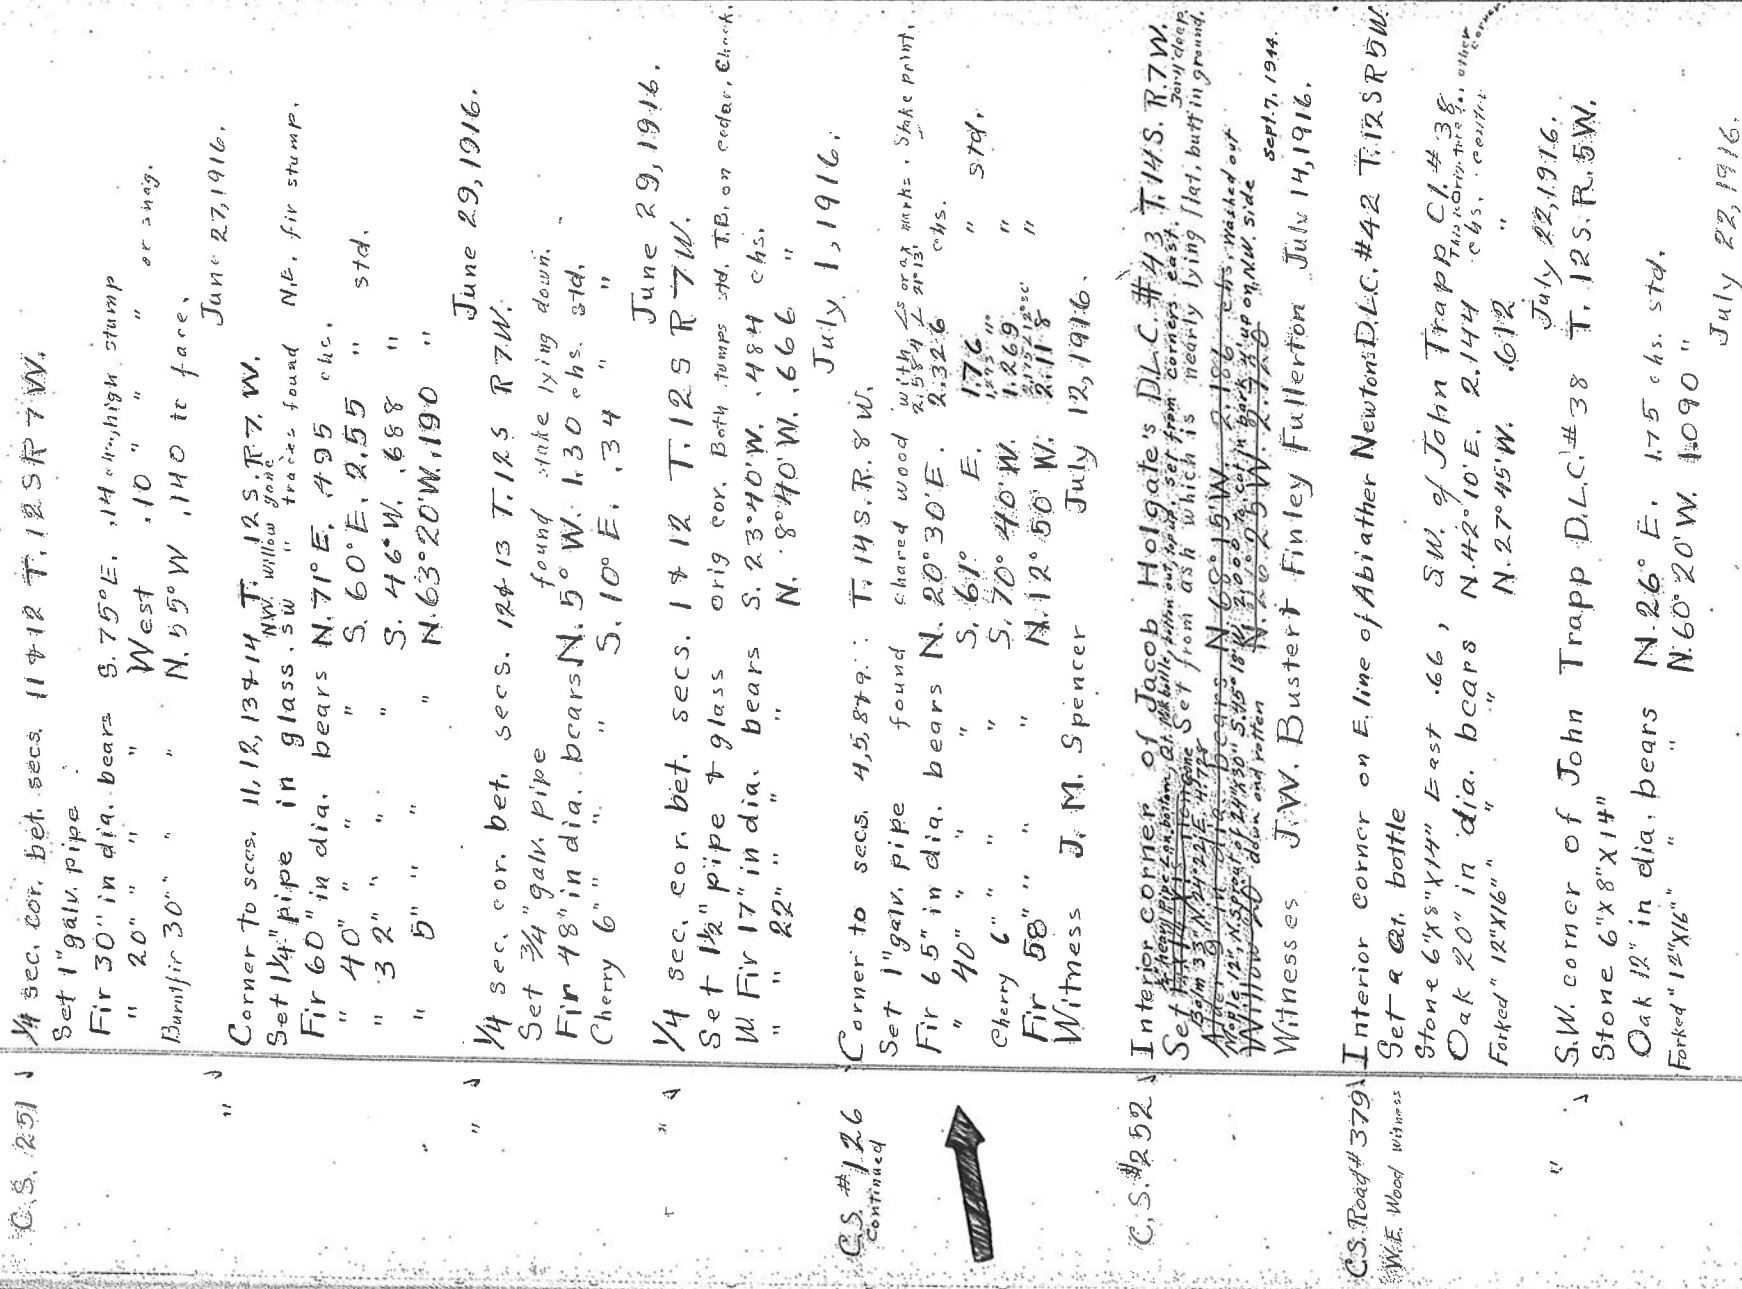 C.S. 251
1/4 sec. cor. bet. secs. 11 & 12 T. 12 S R 7 W.
Set 1" galv. pipe
Fir 30" in dia. bears S. 75° E. .14 chs. high stump
" 20" " " " West .10 " " " or snag.
Burnt fir 30" " " " N. 55° W .140 to face.
June 27, 1916.
"
Corner to secs. 11, 12, 13 & 14 T. 12 S. R. 7. W.
N.W. willow gone
Set 1 1/4" pipe in glass. S.W. " traces found N.E. fir stump.
Fir 60" in dia. bears N. 71° E. .495 chs.
" 40" " " " S. 60° E. 2.55 " std.
" 32" " " " S. 46° W. .688 "
" 5" " " " N. 63° 20' W. .190 "
June 29, 1916.
"
1/4 sec. cor. bet. secs. 12 & 13 T. 12 S R 7 W.
Set 3/4" galv. pipe found stake lying down.
Fir 48" in dia. bears N. 5° W. 1.30 chs. std.
Cherry 6" " " " S. 10° E. .34 " "
June 29, 1916.
"
1/4 sec. cor. bet. secs. 1 & 12 T. 12 S R 7 W.
Set 1 1/2" pipe & glass orig cor. Both stumps std. T.B. on cedar. Check.
W. Fir 17" in dia. bears S. 23° 40' W. .484 chs.
" " 22" " " " N. 8° 40' W. .666 "
July 1, 1916.
C.S. #126
Continued
Corner to secs. 4, 5, 8 & 9. T. 14 S. R. 8 W.
Set 1" galv. pipe found chared wood with ax marks. Stake print.
Fir 65" in dia. bears N. 20° 30' E. 2.326 chs.
" 40" " " " S. 61° E. 1.76 " std.
Cherry 6" " " " S. 70° 40' W. 1.269 "
Fir 58" " " " N. 12° 50' W. 2.118 "
Witness J. M. Spencer July 12, 1916.
C.S. #252
Interior corner of Jacob Holgate's D.L.C. #43 T. 14 S. R. 7 W.
Set from ash which is nearly lying flat, butt in ground.
Alder 9" in dia. bears N. 68° 15' W. 2.186 chs. Washed out
Willow 20 down and rotten N. 26° 25' W.
Sept. 7, 1944.
Witnesses J. W. Buster & Finley Fullerton July 14, 1916.
C.S. Road #379
W.E. Wood witness
Interior corner on E. line of Abiather Newton D.L.C. #42 T. 12 S R 5 W.
Set a qt. bottle
Stone 6" x 8" x 14" East .66, S.W. of John Trapp Cl. #38
Oak 20" in dia. bears N. 42° 10' E. 2.144 chs.
Forked " 12" x 16" " " N. 27° 45' W. .612 "
July 22, 1916.
"
S.W. corner of John Trapp D.L.C. #38 T. 12 S. R. 5 W.
Stone 6" x 8" x 14"
Oak 12" in dia. bears N. 26° E. 1.75 chs. std.
Forked " 12" x 16" " " N. 60° 20' W. 1.090 "
July 22, 1916.